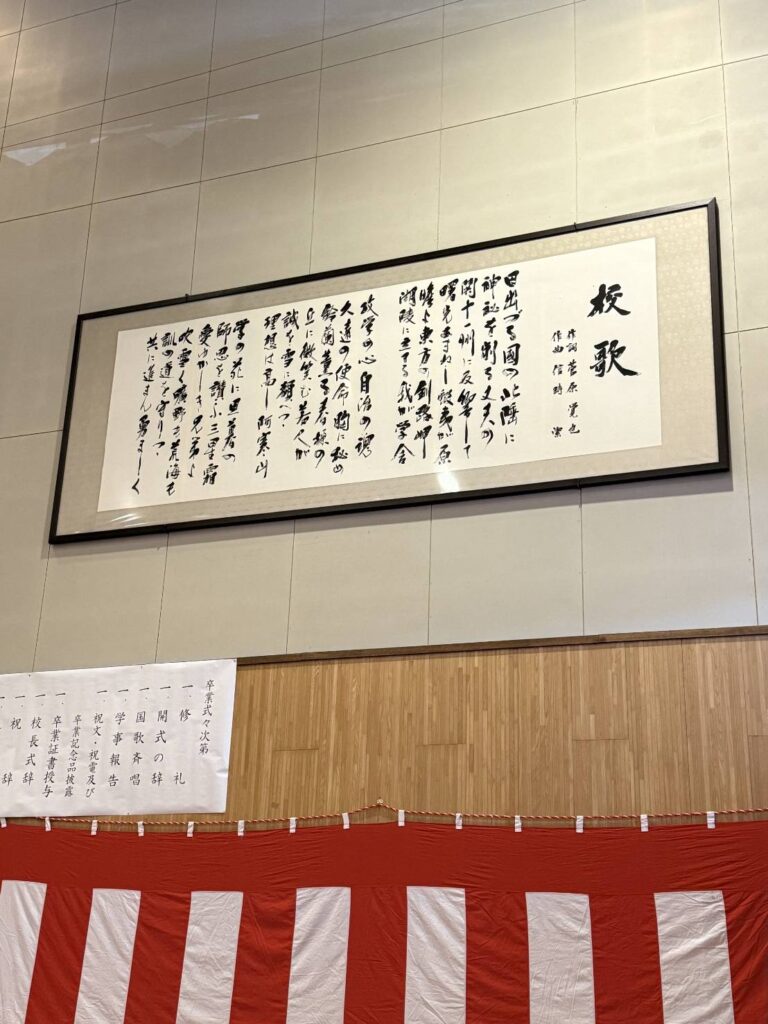 校歌
作詞 菅原覚也
作曲 信時 潔
日出づる国の北隅に
神秘を削る丈夫の
関十一州に反響して
曙光まねし牧夷が原
瞻よ東方の釧路岬
湖陵に立てる我が学舎
攻学の心自治の魂
久遠の使命胸に秘め
鈴蘭薫る春採の
丘に微笑む若人が
誠を雪に顔へつゝ
理想は高し阿寒山
学の苑に思暮の
師恩を讃ふ三星霜
愛ゆかしき兄弟よ
吹雪く曠野も荒海も
訓の道を守りつゝ
共に進まん勇ましく
卒業式々次第
一、修礼
一、開式の辞
一、国歌斉唱
一、学事報告
一、祝文・祝電及び
卒業記念品披露
一、卒業証書授与
一、校長式辞
一、祝辞